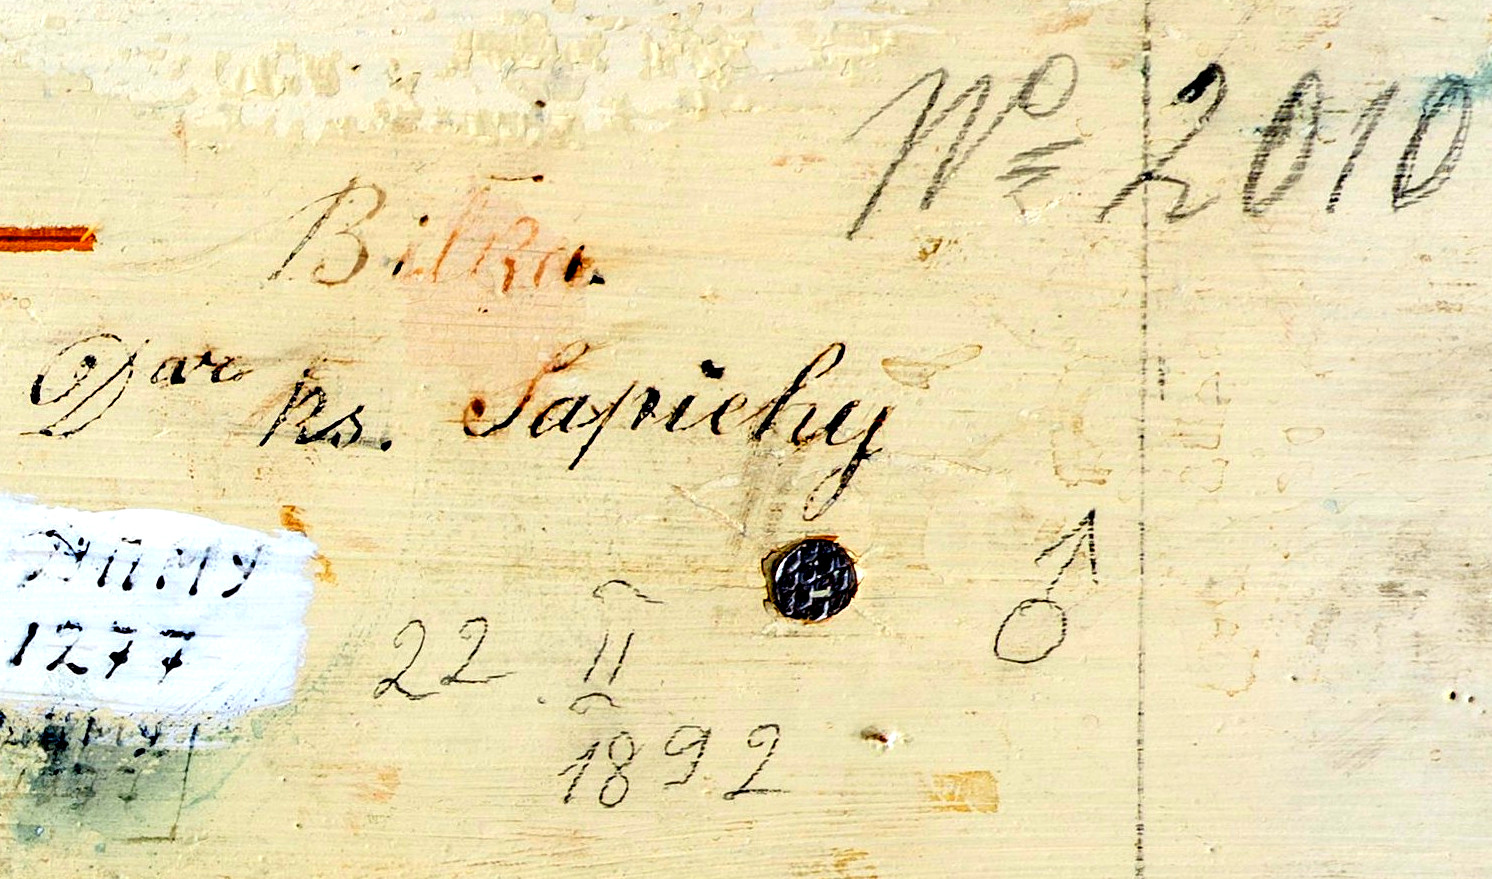 № 2010
Bilka.
Dar ks. Sapiehy
ДПМУ
1277
♂
22 II
1892